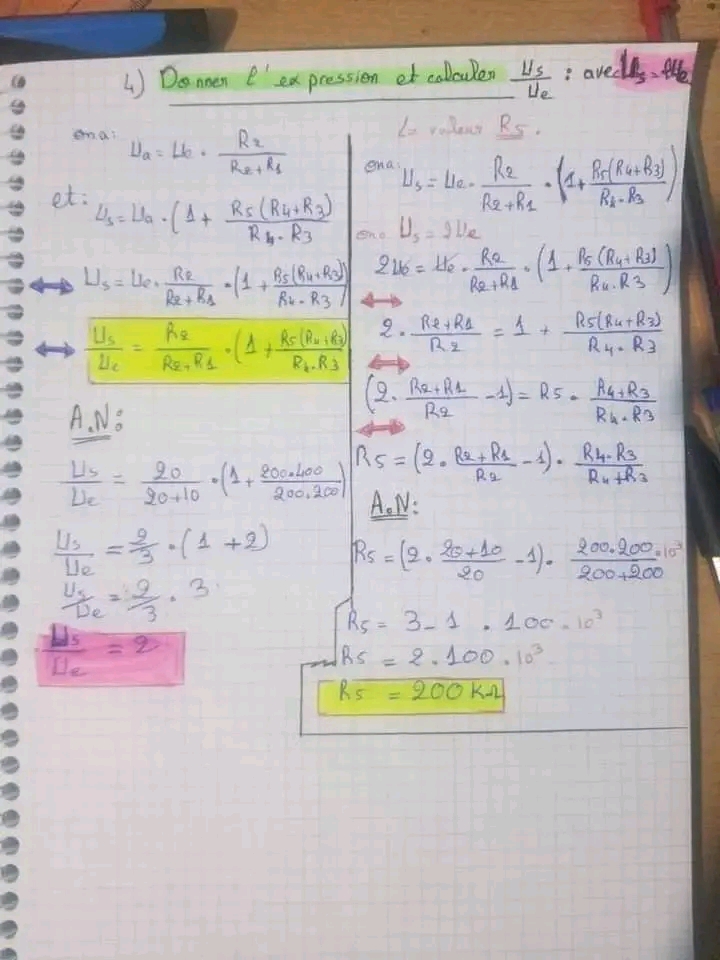 4) Donner l'expression et calculer Us/Ue : avec Us=2Ue
ona: Ua = Ue . R2/(R2+R1)
et: Us = Ua . (1 + R5(R4+R3)/(R4.R3)
⟷ Us = Ue . R2/(R2+R1) . (1 + R5(R4+R3)/(R4.R3))
⟷ Us/Ue = R2/(R2+R1) . (1 + R5(R4+R3)/(R4.R3)
A.N:
Us/Ue = 20/(20+10) . (1 + 200.400/(200.200))
Us/Ue = 2/3 . (1 + 2)
Us/Ue = 2/3 . 3
Us/Ue = 2
La valeur R5.
ona: Us = Ue . R2/(R2+R1) . (1 + R5(R4+R3)/(R4.R3))
ona Us = 2Ue
2Ue = Ue . R2/(R2+R1) . (1 + R5(R4+R3)/(R4.R3))
⟷ 2 . (R2+R1)/R2 = 1 + R5(R4+R3)/(R4.R3)
⟷ (2 . (R2+R1)/R2 - 1) = R5 . (R4+R3)/(R4.R3)
⟷ R5 = (2 . (R2+R1)/R2 - 1) . (R4.R3)/(R4+R3)
A.N:
R5 = (2 . (20+10)/20 - 1) . (200.200.10³)/(200+200)
R5 = 3 - 1 . 100 . 10³
R5 = 2 . 100 . 10³
R5 = 200 KΩ